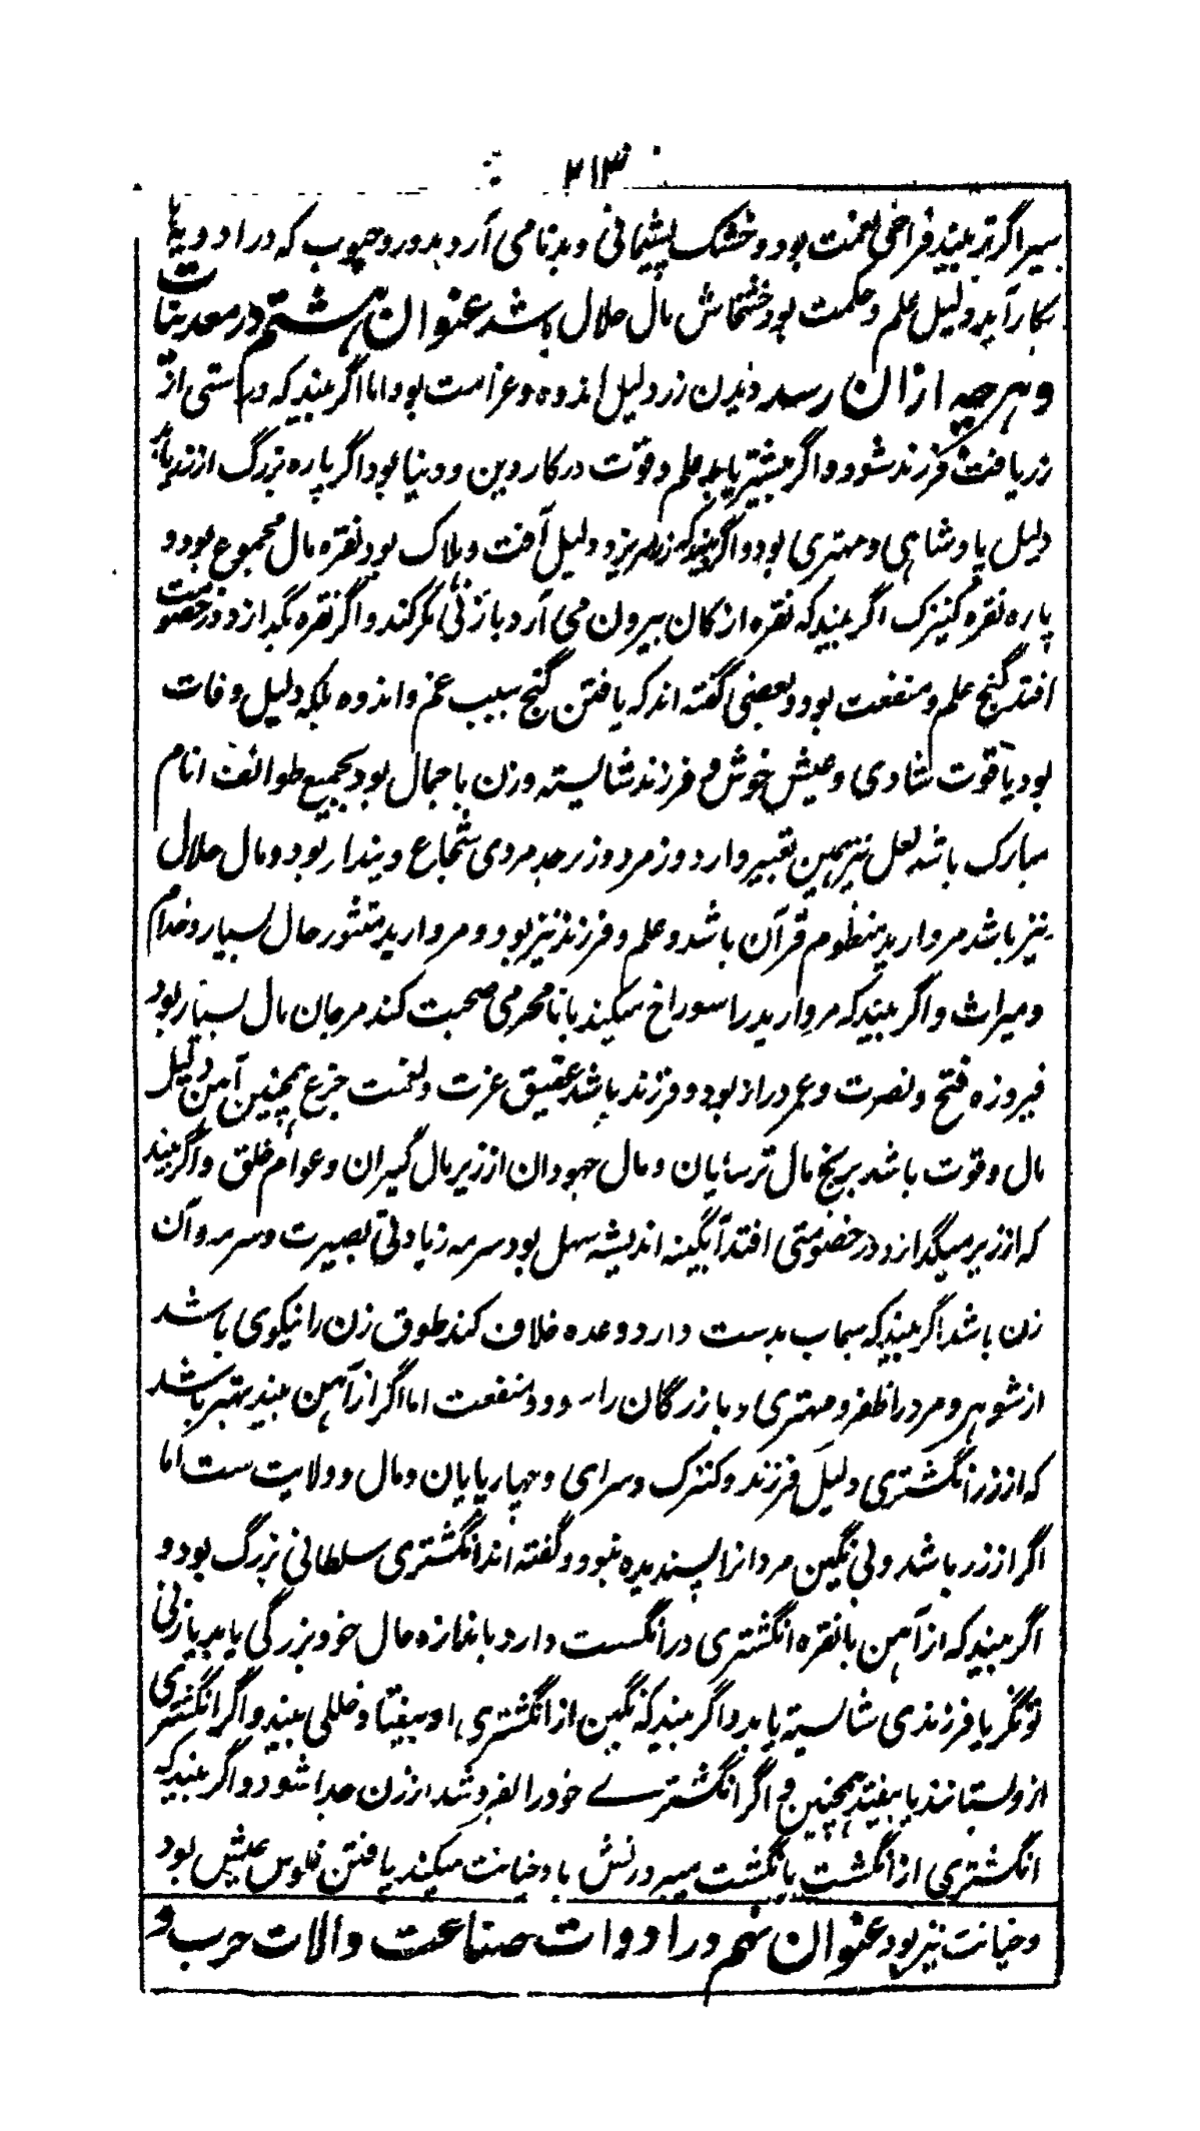 ۲۱۳
سیر اگر تر بیند فراخی نعمت بود و خشک پشیمانی و بدنامی آرد بدور و حبوب که در ادویها
بکار آید دلیل علم و حکمت بود خشخاش مال حلال باشد عنوان هشتم در معدنیات
و هرچه ازان رسد دیدن زر دلیل اندوه و غرامت بود اما اگر بیند که در استی از
زر یافت فرزند شود و اگر بیشتر یابد علم و قوت در کار دین و دنیا بود اگر پاره بزرگ از زر یابد
دلیل پادشاهی و مهتری بود و اگر بیند که زر میریزد دلیل آفت و هلاک بود نقره مال مجموع بود و
پاره نقره کنیزک اگر بیند که نقره از کان بیرون می آرد بازنی مکر کند و اگر نقره بگدازد در خصومت
افتد گنج علم و منفعت بود و بعضی گفته اند که یافتن گنج سبب غم و اندوه بلکه دلیل وفات
بود یاقوت شادی و عیش خوش و فرزند شایسته و زن با جمال بود بجمیع طوائف انام
مبارک باشد لعل نیز همین تعبیر دارد و زمرد و زبرجد مردی شجاع و دیندار بود و مال حلال
نیز باشد مروارید منظوم قرآن باشد و علم و فرزند نیز بود و مروارید منثور حال بسیار و خدام
و میراث و اگر بیند که مروارید را سوراخ میکند با نامحرمی صحبت کند مرجان مال بسیار بود
فیروزه فتح و نصرت و عمر دراز بود و فرزند باشد عقیق عزت و نعمت جزع همچنین آهن دلیل
مال و قوت باشد برنج مال ترسایان و مال جهودان ارزیر مال گبران و عوام خلق و اگر بیند
که ارزیر میگدازد در خصومتی افتد آبگینه اندیشه سهل بود سرمه زیادتی بصیرت و سرمه دان
زن باشد اگر بیند که سیماب بدست دارد وعده خلاف کند طوق زن را نیکوی باشد
از شوهر و مرد را ظفر و مهتری و بازرگان را سود و منفعت اما اگر از آهن بیند بهتر باشد
که از زر انگشتری دلیل فرزند و کنیزک و سرای و چهارپایان و مال و ولایت ست اما
اگر از زر باشد و بی نگین مردانرا پسندیده نبود و گفته اند انگشتری سلطانی بزرگ بود و
اگر بیند که از آهن یا نقره انگشتری در انگست دارد باندازه حال خود بزرگی یابد یا زنی
تونگر یا فرزندی شایسته یابد و اگر بیند که نگین از انگشتری او بیفتاد خللی بیند و اگر انگشتری
از و بستانند یا بیفتد همچنین و اگر انگشترے خود را بفروشد از زن جدا شود و اگر بیند که
انگشتری از انگشت بانگشت میبرد زنش با و خیانت میکند یافتن فلوس عیش بود
و خیانت نیز بود عنوان نهم در ادوات صناعت و الات حرب و